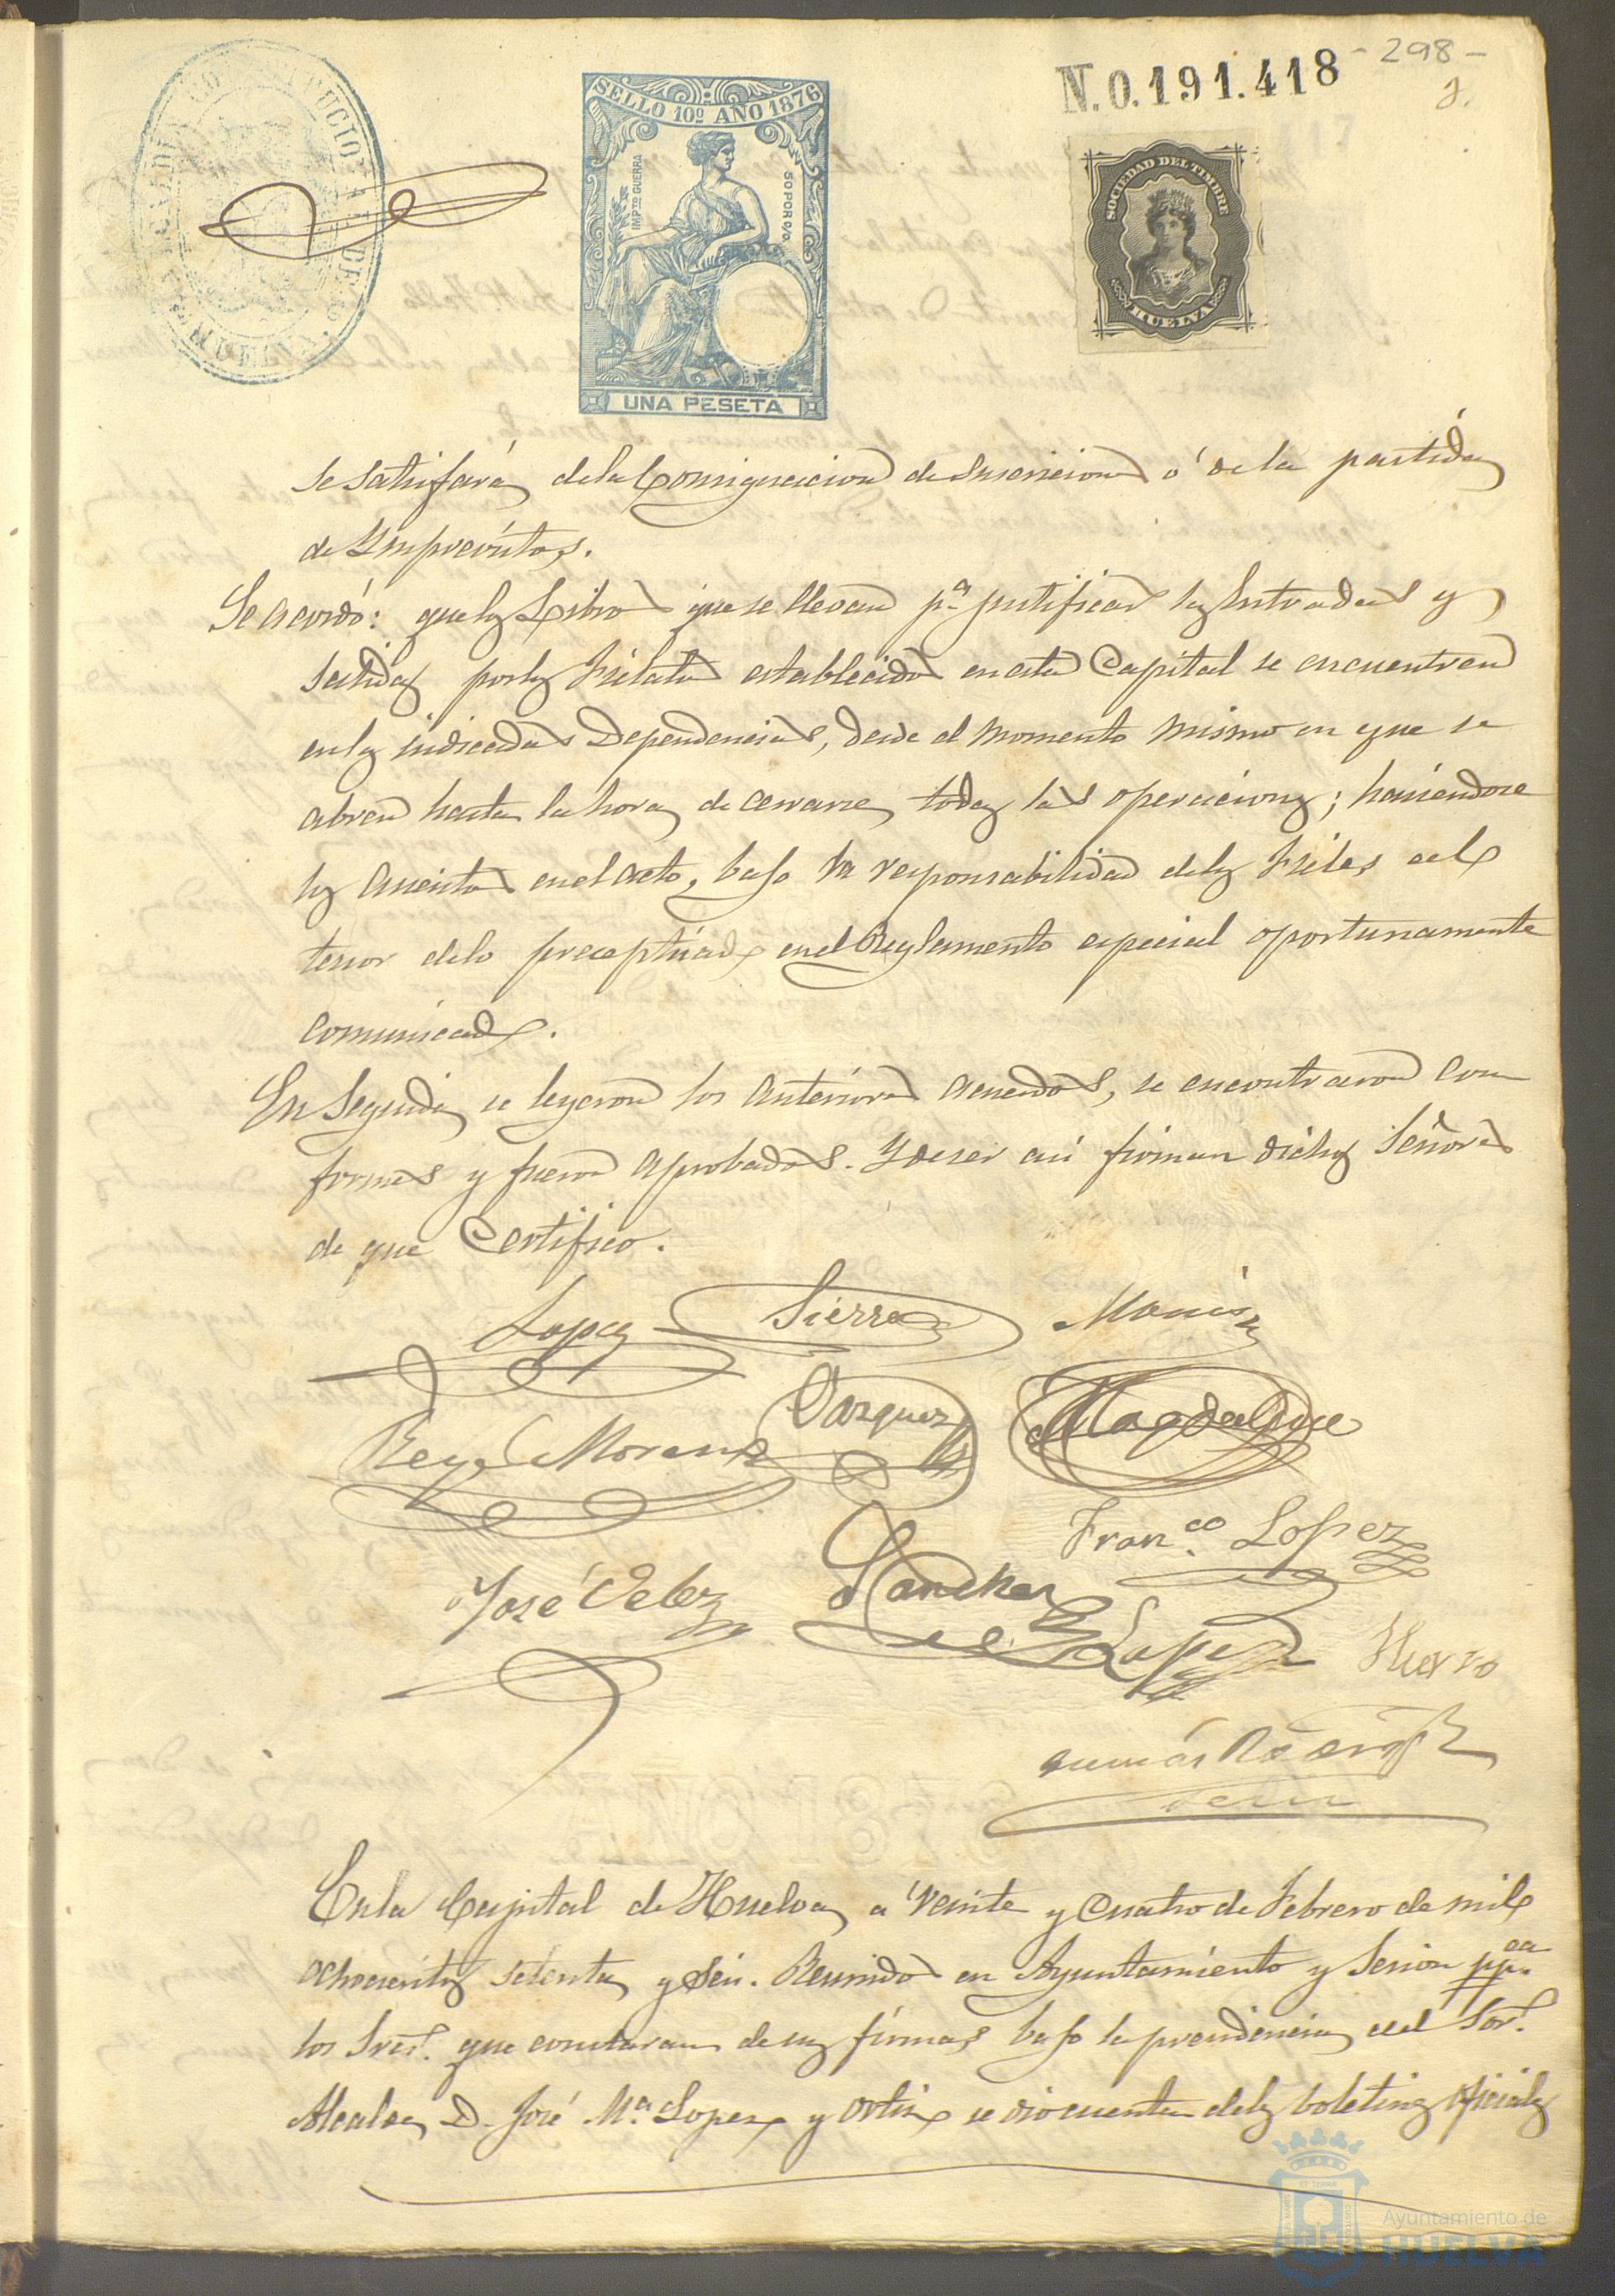 N.0.191.418
- 298 -
ALCALDIA CONSTITUCIONAL
HUELVA
SELLO 10º AÑO 1876
IMPTO GUERRA
50 POR 0/0
UNA PESETA
SOCIEDAD DEL TIMBRE
HUELVA
se satisfará de la Consignacion de Suscricion ó de la partida
de Ymprevistos.
Se acordó: que los Libros que se llevan pª justificar las Entradas y
salidas por los Fielatos establecidos en esta Capital se encuentren
en las indicadas Dependencias, desde el momento mismo en que se
abren hasta la hora de cerrarse todas las operaciones; haciendose
los asientos en el acto, bajo la responsabilidad de los Fieles al
tenor de lo preceptuado en el Reglamento especial oportunamente
comunicado.
En Seguida se leyeron los anteriores acuerdos, se encontraron con
formes y fueron aprobados. Y de ser asi firman dichos Señores
de que Certifico.
Lopez Sierra
Rey Moreno Vazquez
Franco. Lopez
José Velez Sanchez
Lopez Hierro
En la Capital de Huelva a veinte y cuatro de Febrero de mil
ochocientos setenta y seis. Reunidos en Ayuntamiento y Sesion ppca.
los Sres. que constaran de sus firmas bajo la presidencia del Sor.
Alcalde D. José Mª Lopez y Ortiz se dio cuenta de los boletines oficiales
Ayuntamiento de
HUELVA